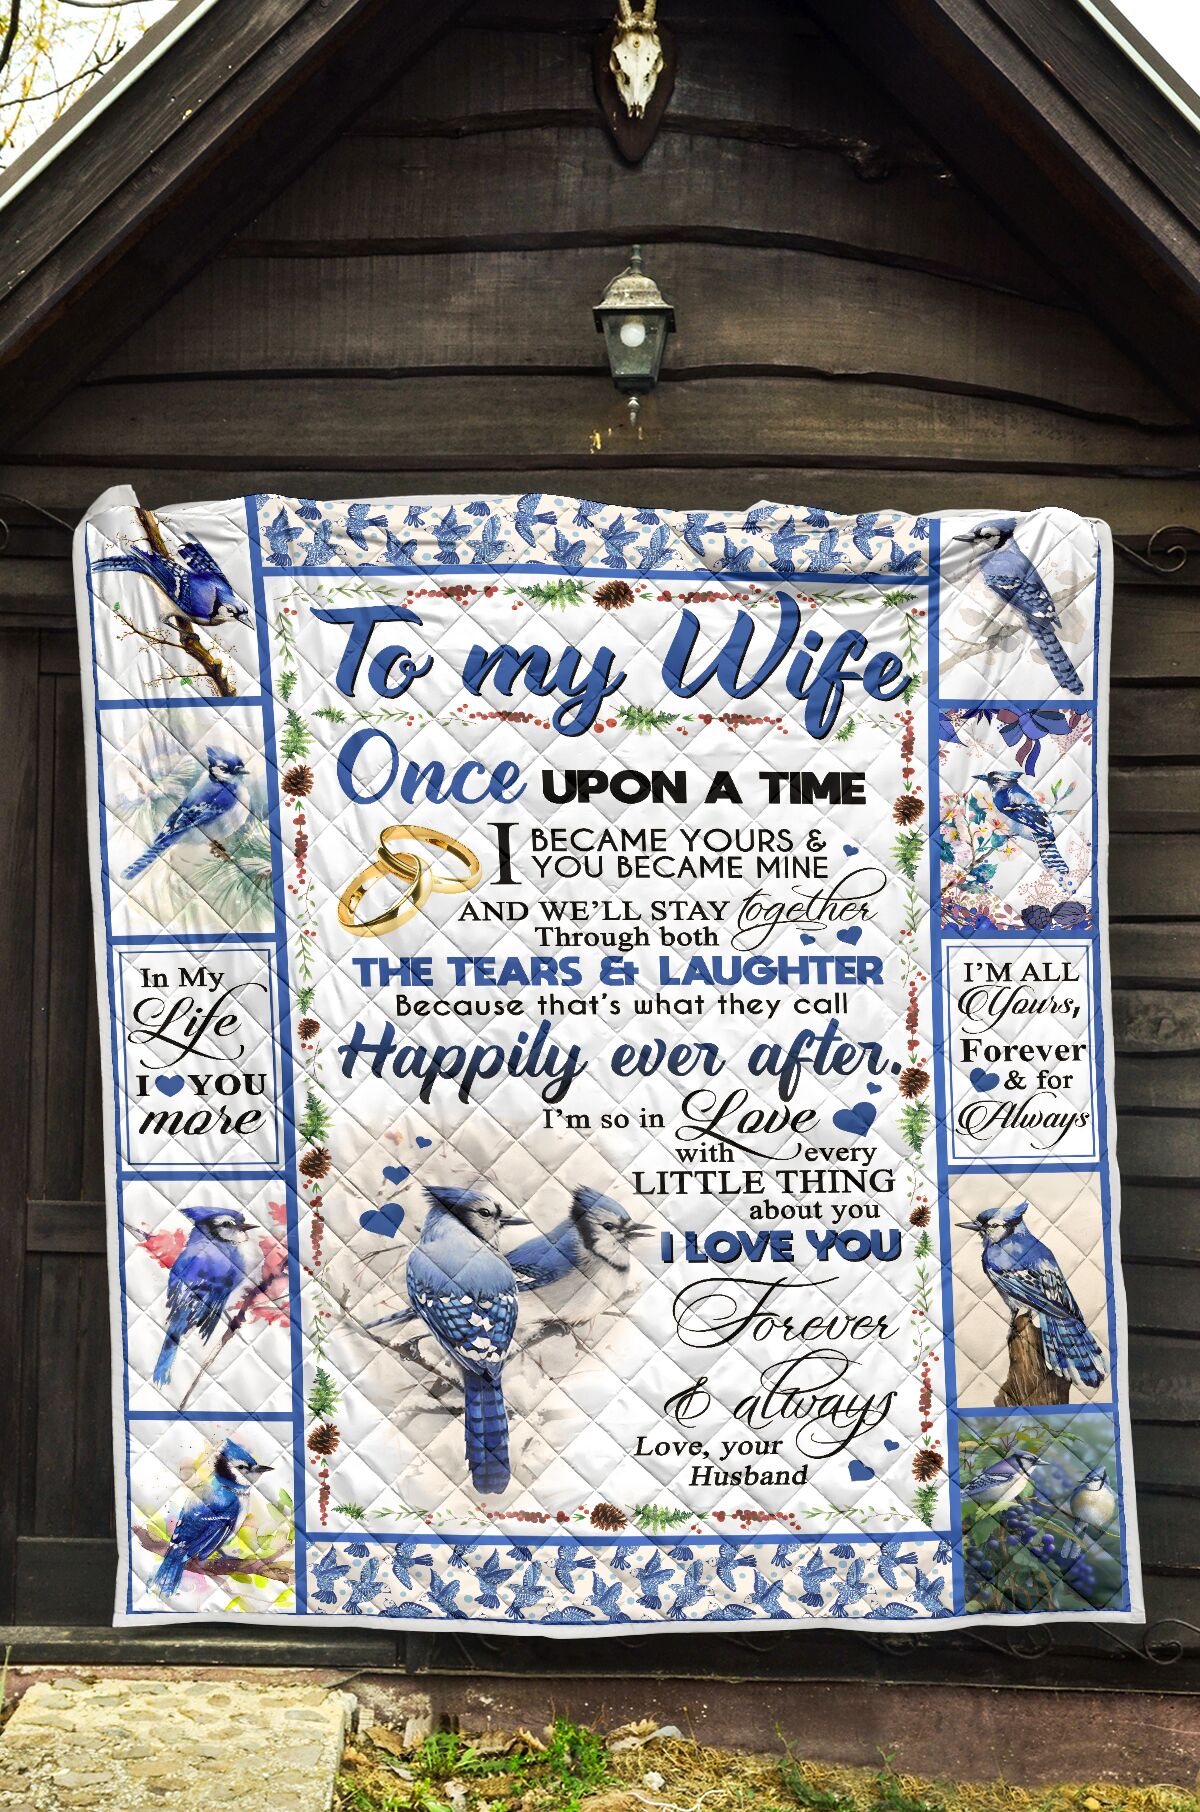 To my Wife
Once UPON A TIME
I BECAME YOURS &
YOU BECAME MINE
AND WE'LL STAY together
Through both
THE TEARS & LAUGHTER
Because that's what they call
Happily ever after.
I'm so in Love
with every
LITTLE THING
about you
I LOVE YOU
Forever
& always
Love, your
Husband
In My
Life
I YOU
more
I'M ALL
Yours,
Forever
& for
Always